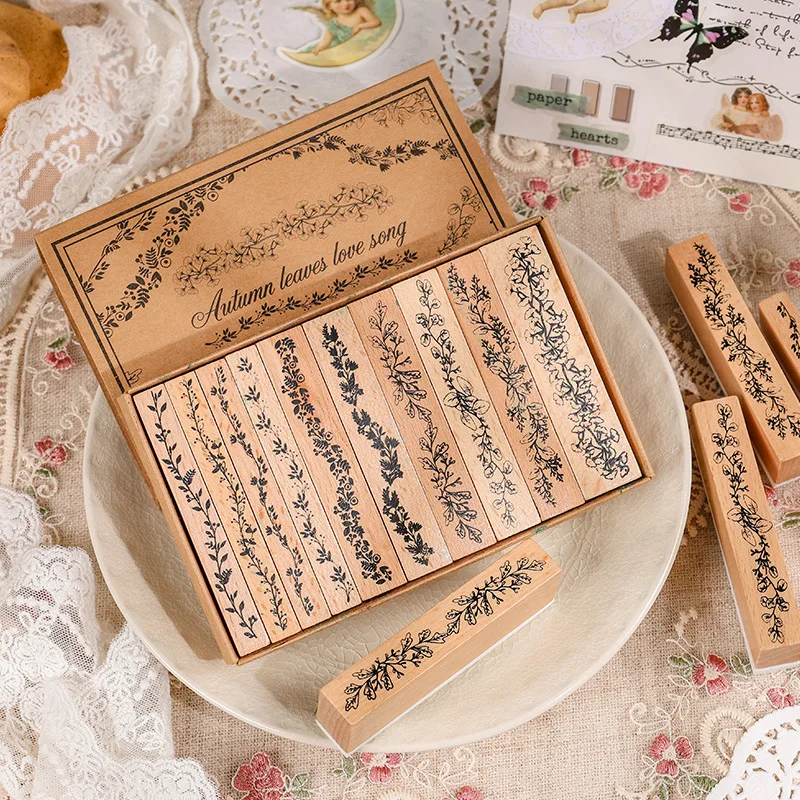 paper
hearts
Autumn leaves love song